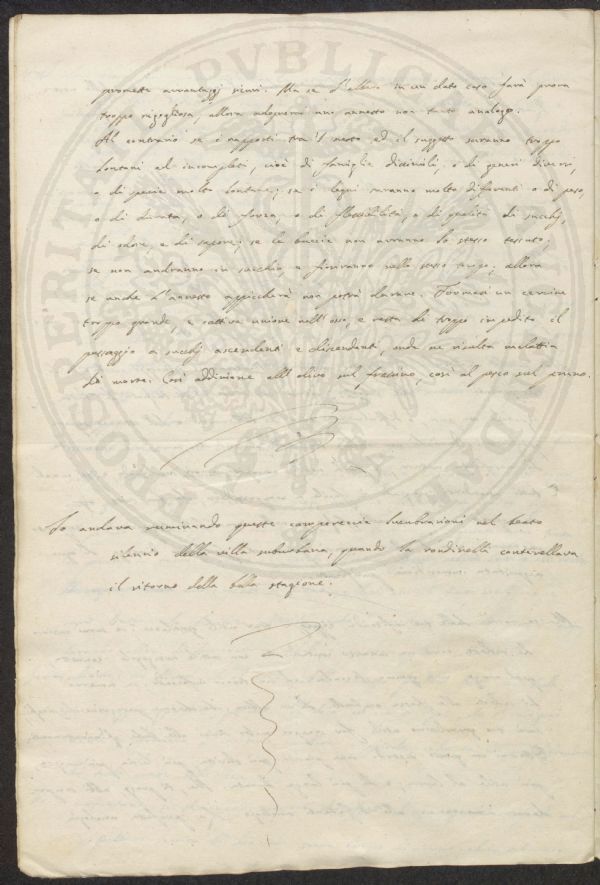 promette avvantaggj sicuri. Ma se l'albero in un dato caso farà prova
troppo rigogliosa, allora adoprerei un annesto non tanto analogo.
Al contrario se i rapporti tra 'l nesto ed il suggetto saranno troppo
lontani ed incompleti, cioè di famiglie dissimili, o di generi diversi,
o di specie molto lontane; se i legni saranno molto differenti o di peso,
o di durata, o di forza, o di flessibilità, o di qualità di succhj,
di odore, e di sapore; se le buccie non avranno lo stesso tessuto;
se non andranno in succhio, e fioriranno nello stesso tempo; allora
se anche l'annesto appiccherà non potrà durare. Formasi un cercine
troppo grande, e cattiva unione nell'osso, e resta di troppo impedito il
passaggio a succhj ascendenti e discendenti, onde ne risulta malattia
e morte. Così addiviene all'olivo sul frassino, così al pesco sul pruno.
Io andava ruminando queste camporeccie lucubrazioni nel beato
silenzio della villa suburbana, quando la rondinella canterellava
il ritorno della bella stagione.
PVBLICA
PROSPERITA